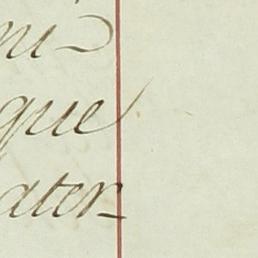 ni
que
ater-